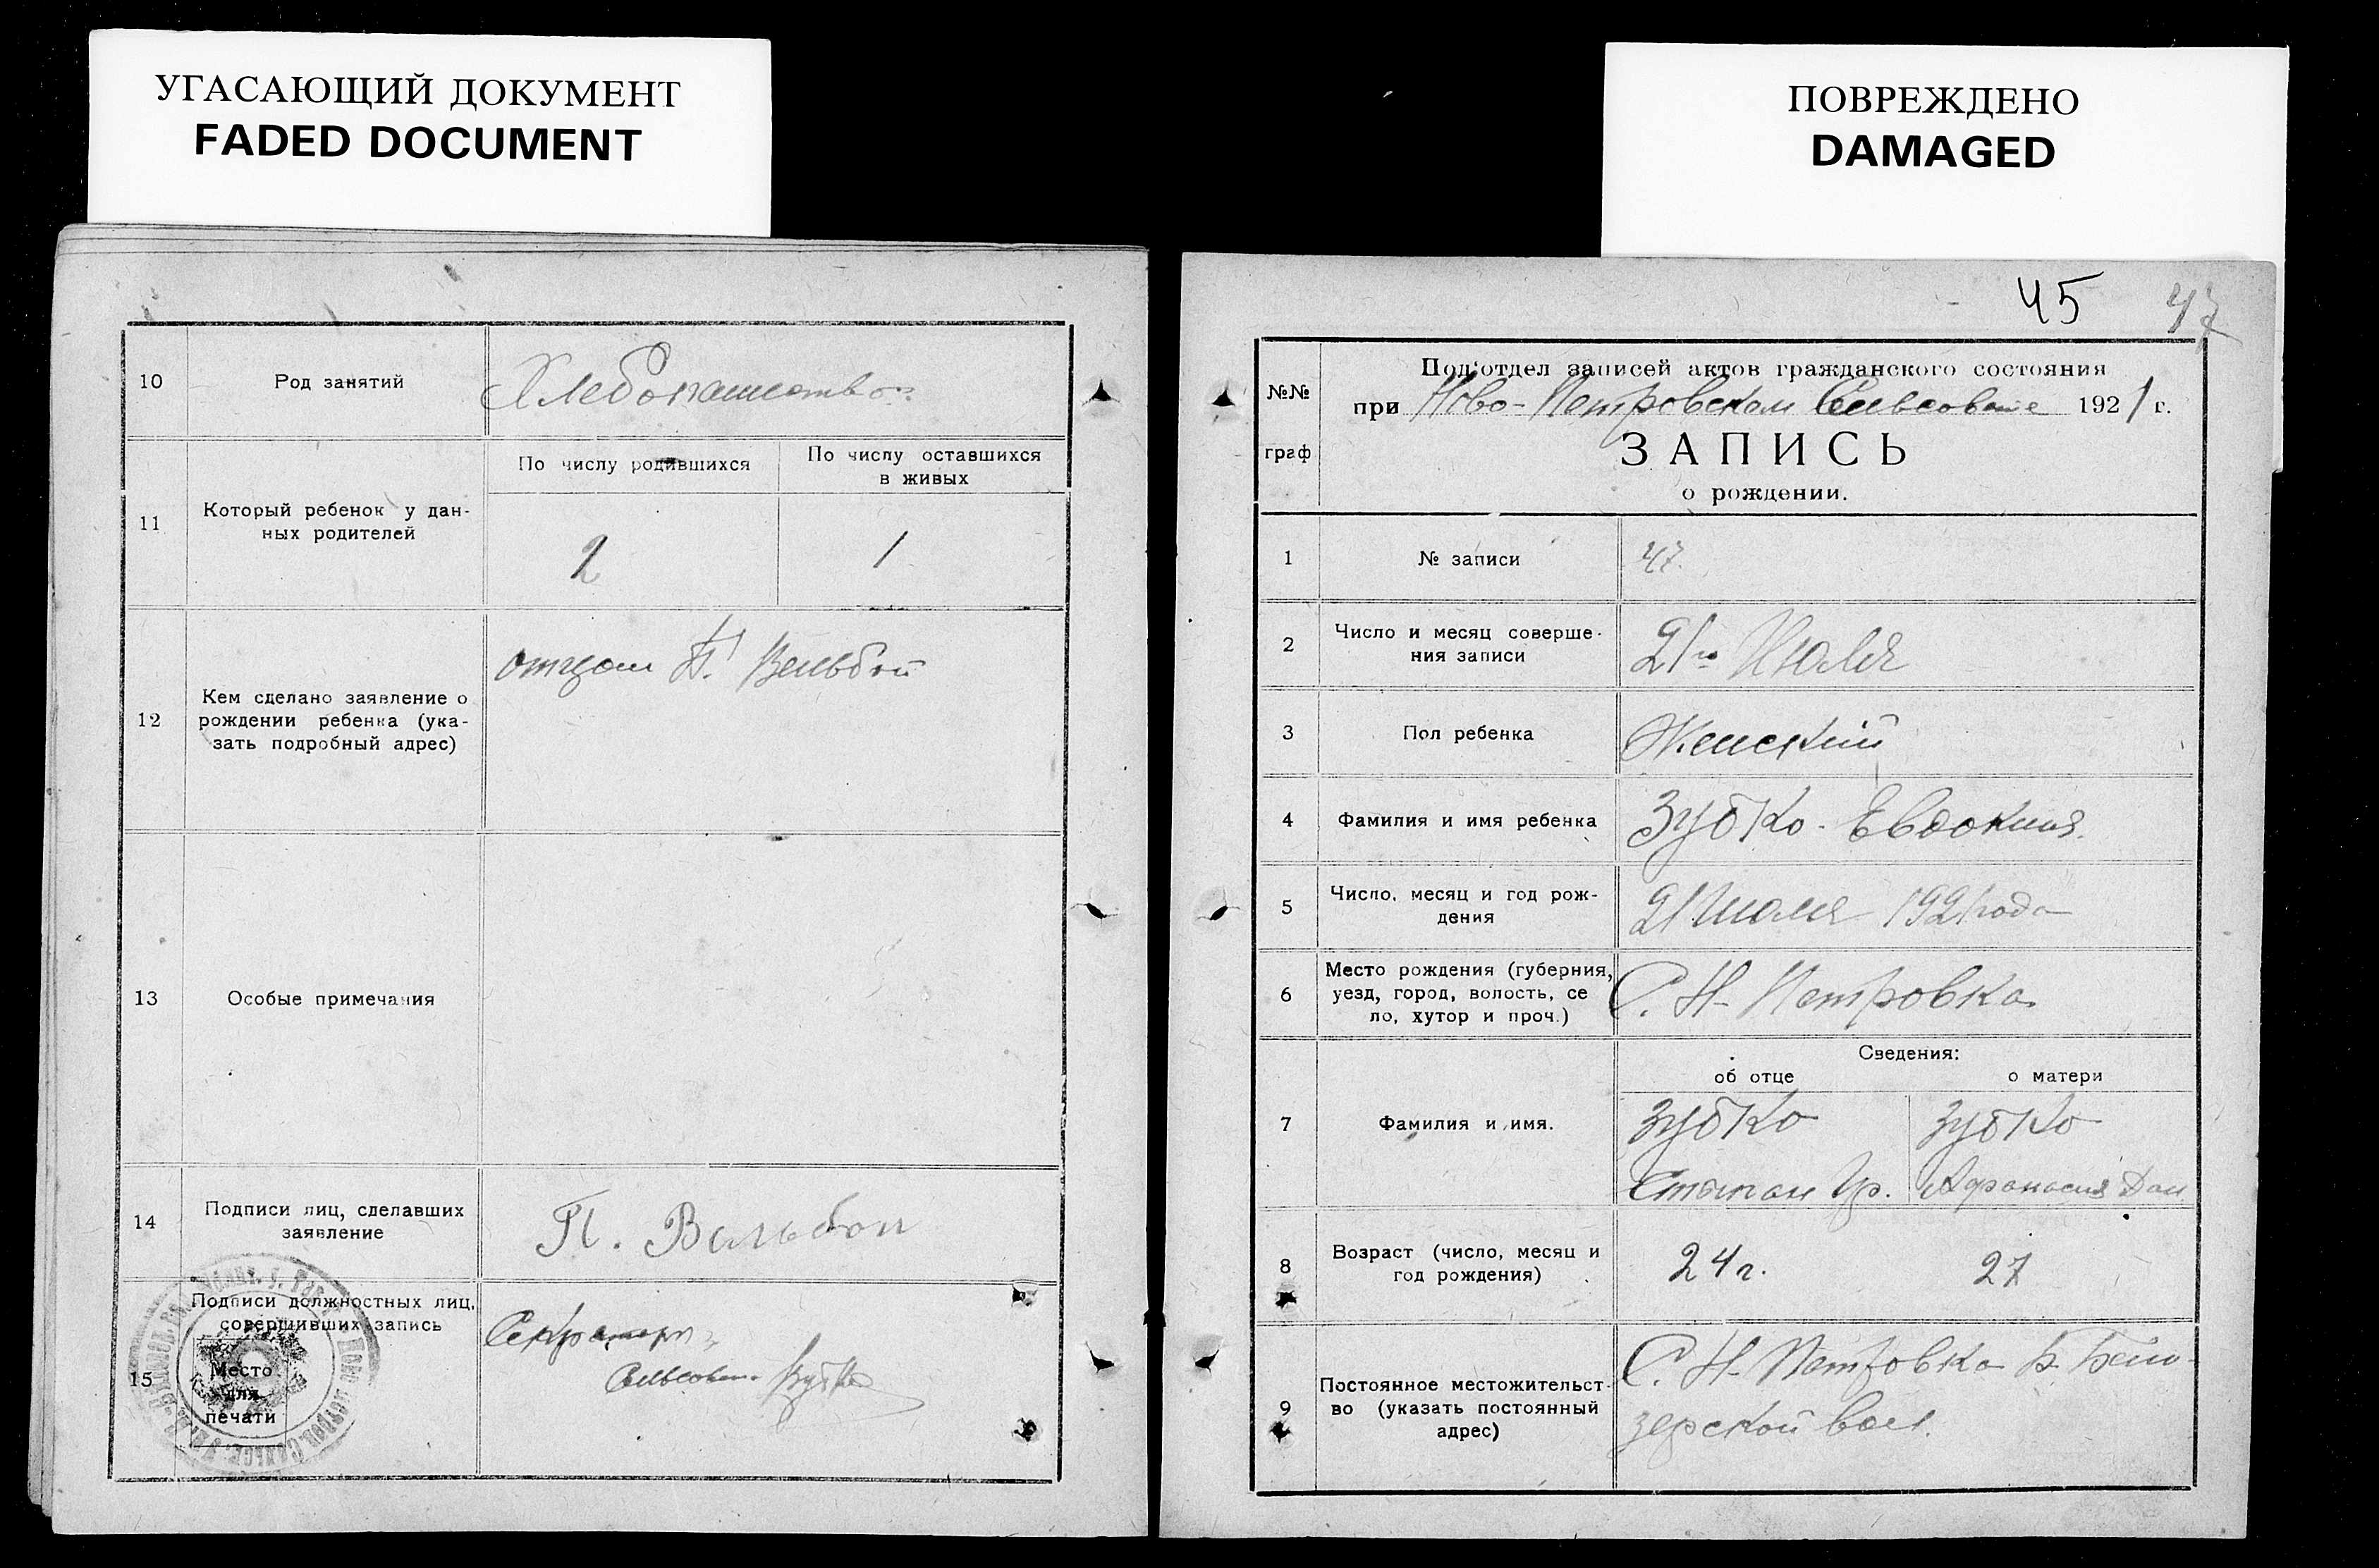 УГАСАЮЩИЙ ДОКУМЕНТ
FADED DOCUMENT
10
Род занятий
Хлебопашество
11
Который ребенок у дан-
ных родителей
По числу родившихся
2
По числу оставшихся
в живых
1
12
Кем сделано заявление о
рождении ребенка (ука-
зать подробный адрес)
отцом П.
13
Особые примечания
14
Подписи лиц, сделавших
заявление
П.
15
Подписи должностных лиц,
совершивших запись
Место
для
печати
Секратарь
Сельсовета
ПОВРЕЖДЕНО
DAMAGED
45 47
№№
граф
Под'отдел записей актов гражданского состояния
при Ново-Петровском Сельсовете 1921 г.
ЗАПИСЬ
о рождении.
1
№ записи
47.
2
Число и месяц соверше-
ния записи
21го Июля
3
Пол ребенка
Женский
4
Фамилия и имя ребенка
Зубко Евдокия
5
Число, месяц и год рож-
дения
21 Июля 1921 года
6
Место рождения (губерния,
уезд, город, волость, се
ло, хутор и проч.)
С. Н-Петровка
Сведения:
об отце
о матери
7
Фамилия и имя.
Зубко
Степан Гр.
Зубко
Афанасия Дан
8
Возраст (число, месяц и
год рождения)
24 г.
27
9
Постоянное местожительст-
во (указать постоянный
адрес)
С. Н-Петровка Б. Бело-
зерской вол.